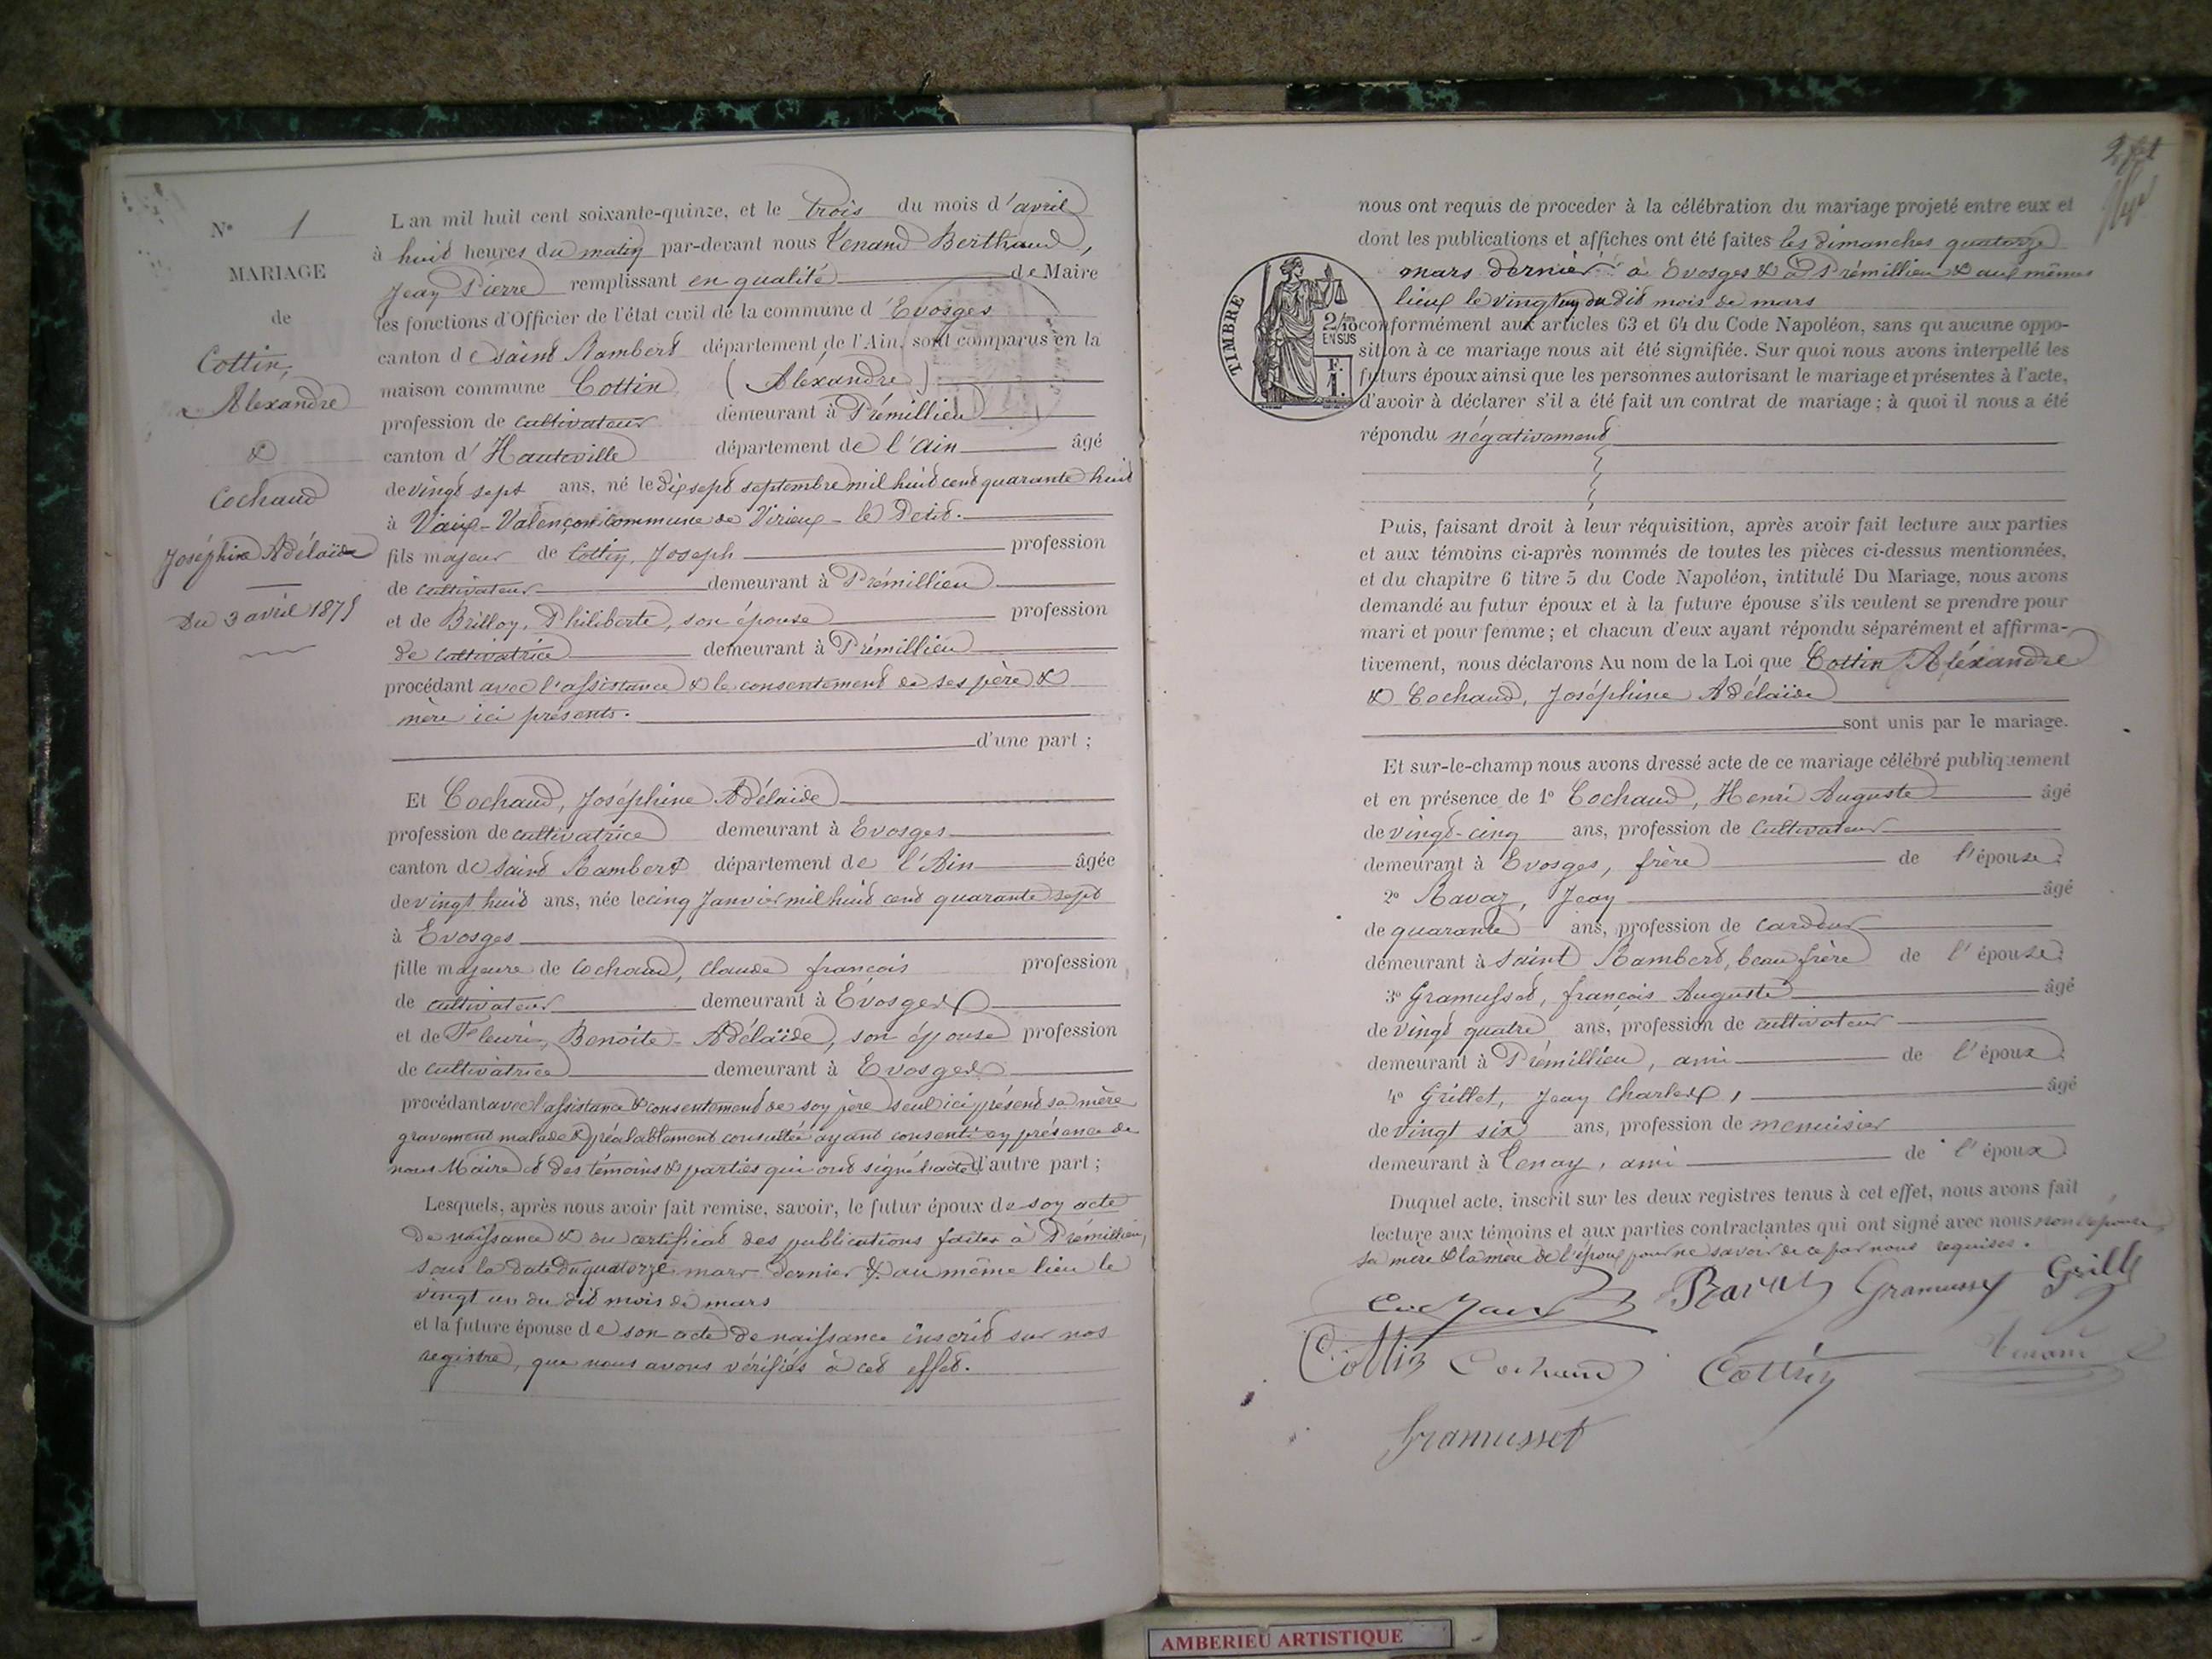 N° 1
MARIAGE
de
Cottin,
Alexandre
&
Cochaud
Joséphine Adélaïde
Du 3 avril 1875
L'an mil huit cent soixante-quinze, et le trois du mois d'avril
à huit heures du matin par-devant nous Tenand Berthaud,
Jean Pierre remplissant en qualité de Maire
les fonctions d'Officier de l'état civil de la commune d'Evosges
canton de saint Rambert département de l'Ain, sont comparus en la
maison commune Cottin (Aléxandre)
profession de cultivateur demeurant à Prémillieu
canton d'Hauteville département de l'Ain âgé
de vingt sept ans, né le dix sept septembre mil huit cent quarante huit
à Vaux-Valençon commune de Virieux-le Petit.
fils majeur de Cottin, Joseph profession
de cultivateur demeurant à Prémillieu
et de Brilloy, Philiberte, son épouse profession
de cultivatrice demeurant à Prémillieu
procédant avec l'assistance & le consentement de ses père &
mère ici présents.
d'une part ;
Et Cochaud, Joséphine Adélaïde
profession de cultivatrice demeurant à Evosges
canton de saint Rambert département de l'Ain âgée
de vingt huit ans, née le cinq Janvier mil huit cent quarante sept
à Evosges
fille majeure de Cochaud, Claude françois profession
de cultivateur demeurant à Évosges
et de Fleuri, Benoite-Adélaïde, son épouse profession
de cultivatrice demeurant à Evosges
procédant avec l'assistance & consentement de son père seul ici présent sa mère
gravement malade & préalablement consultée ayant consenti en présence de
nous Maire et des témoins & parties qui ont signé l'acte d'autre part ;
Lesquels, après nous avoir fait remise, savoir, le futur époux de son acte
de naissance & du certificat des publications faites à Prémillieu,
sous la date du quatorze mars dernier & au même lieu le
vingt un du dit mois de mars
et la future épouse de son acte de naissance inscrit sur nos
registre, que nous avons vérifiés à cet effet.
nous ont requis de proceder à la célébration du mariage projeté entre eux et
dont les publications et affiches ont été faites les dimanches quatorze
mars dernier à Evosges & à Prémillieu & aux mêmes
lieux le vingt un du dit mois de mars
TIMBRE
2/10 EN SUS
F. 1.
conformément aux articles 63 et 64 du Code Napoléon, sans qu'aucune oppo-
sition à ce mariage nous ait été signifiée. Sur quoi nous avons interpellé les
futurs époux ainsi que les personnes autorisant le mariage et présentes à l'acte,
d'avoir à déclarer s'il a été fait un contrat de mariage ; à quoi il nous a été
répondu négativement
Puis, faisant droit à leur réquisition, après avoir fait lecture aux parties
et aux témoins ci-après nommés de toutes les pièces ci-dessus mentionnées,
et du chapitre 6 titre 5 du Code Napoléon, intitulé Du Mariage, nous avons
demandé au futur époux et à la future épouse s'ils veulent se prendre pour
mari et pour femme ; et chacun d'eux ayant répondu séparément et affirma-
tivement, nous déclarons Au nom de la Loi que Cottin Aléxandre
& Cochaud, Joséphine Adélaïde
sont unis par le mariage.
Et sur-le-champ nous avons dressé acte de ce mariage célébré publiquement
et en présence de 1° Cochaud, Henri Auguste âgé
de vingt-cinq ans, profession de cultivateur
demeurant à Evosges, frère de l'épouse
2° Ravaz, Jean âgé
de quarante ans, profession de cardeur
demeurant à Saint Rambert, beau frère de l'épouse
3° Gramusset, françois Auguste âgé
de vingt quatre ans, profession de cultivateur
demeurant à Prémillieu, ami de l'époux
4° Grillet, Jean Charles, âgé
de vingt six ans, profession de menuisier
demeurant à Tenay, ami de l'époux
Duquel acte, inscrit sur les deux registres tenus à cet effet, nous avons fait
lecture aux témoins et aux parties contractantes qui ont signé avec nous non l'épouse
sa mère & la mère de l'époux pour ne savoir de ce par nous requises.
Cochaud Ravaz Gramusset Grillet
Cottin Cochaud Cottin Tenand
Gramusset
AMBERIEU ARTISTIQUE